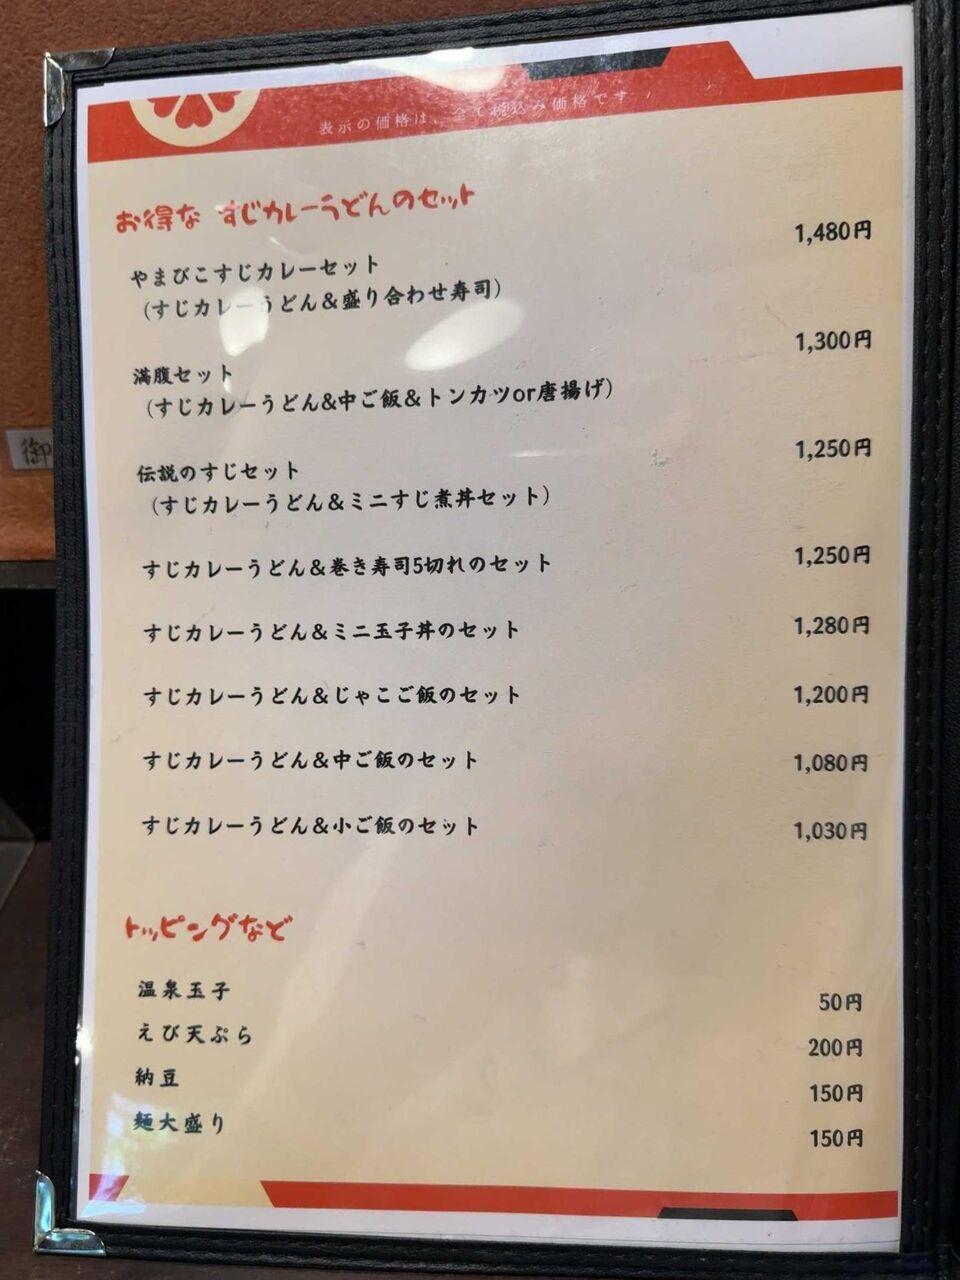 表示の価格は、全て税込み価格です
お得な すじカレーうどんのセット
やまびこすじカレーセット 1,480円
(すじカレーうどん&盛り合わせ寿司)
満腹セット 1,300円
(すじカレーうどん&中ご飯&トンカツor唐揚げ)
伝説のすじセット 1,250円
(すじカレーうどん&ミニすじ煮丼セット)
すじカレーうどん&巻き寿司5切れのセット 1,250円
すじカレーうどん&ミニ玉子丼のセット 1,280円
すじカレーうどん&じゃこご飯のセット 1,200円
すじカレーうどん&中ご飯のセット 1,080円
すじカレーうどん&小ご飯のセット 1,030円
トッピングなど
温泉玉子 50円
えび天ぷら 200円
納豆 150円
麺大盛り 150円
御